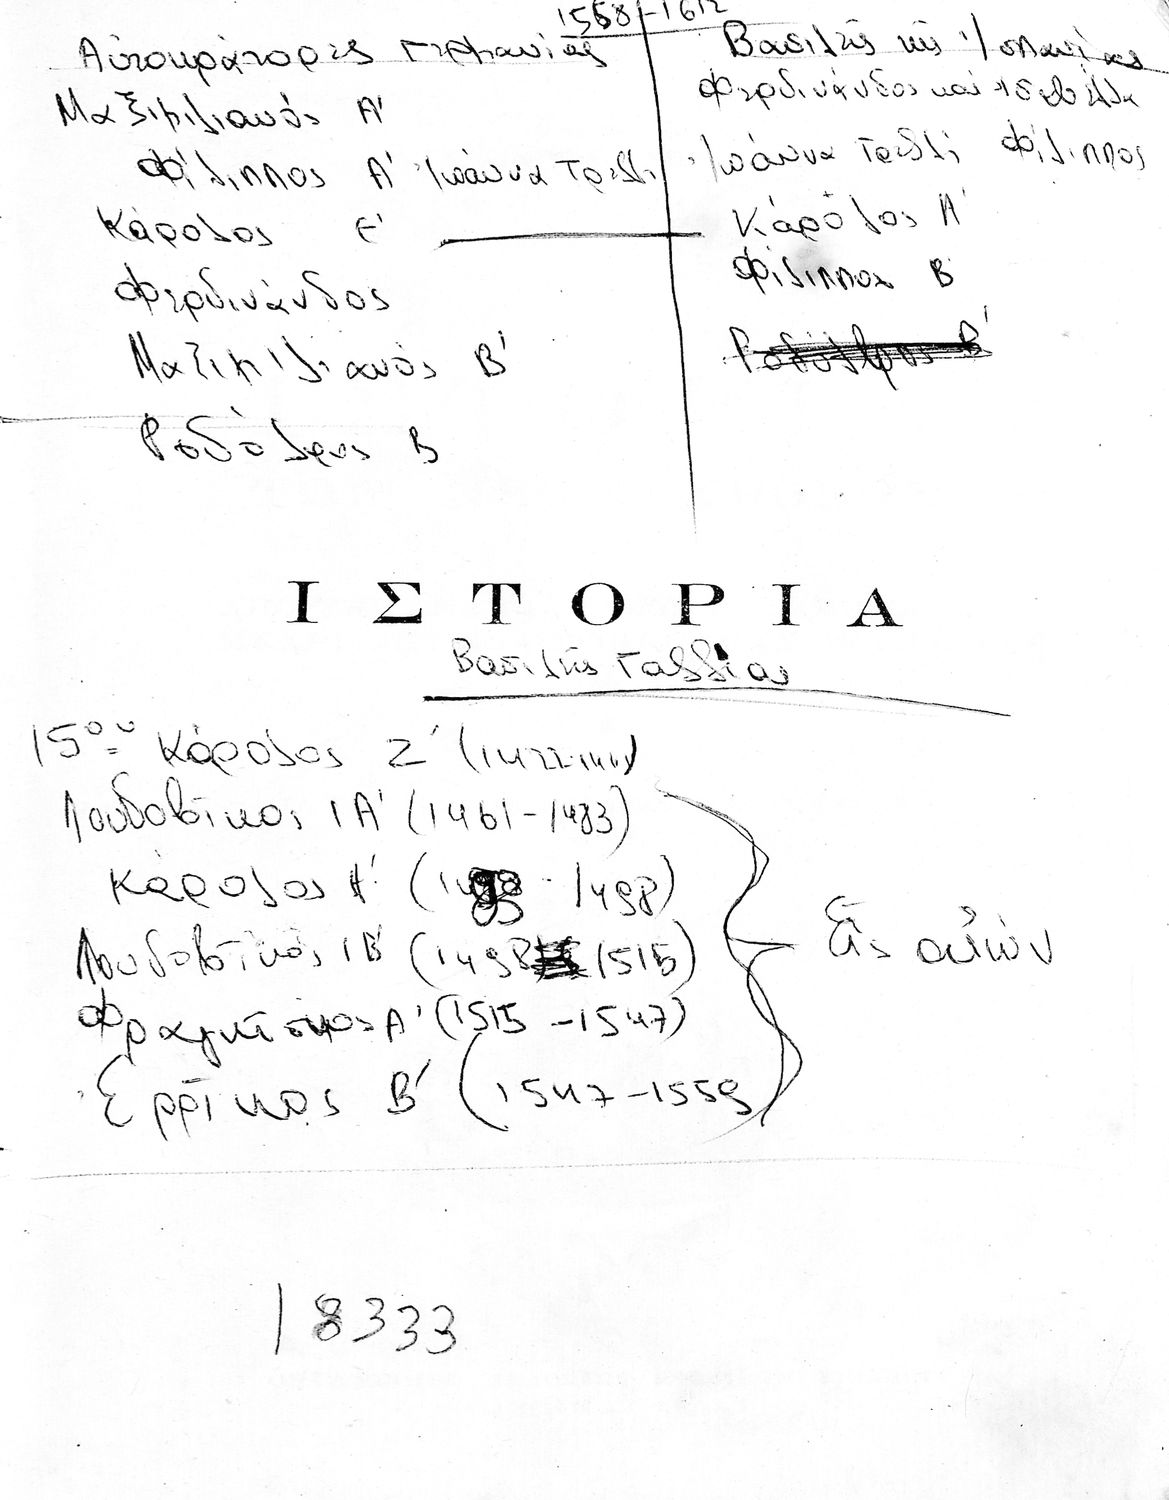 1568-1612
Αὐτοκράτορες Γερμανίας
Μαξιμιλιανός Α'
Φίλιππος Α' Ἰωάννα Τρελλή
Κάρολος Ε'
Φερδινάνδος
Μαξιμιλιανός Β'
Ροδόλφος Β
Βασιλεῖς τῆς Ἱσπανίας
Φερδινάνδος καί Ισαβέλλα
Ἰωάννα Τρελλή Φίλιππος
Κάρολος Α'
Φίλιππος Β
Ροδόλφος Β'
ΙΣΤΟΡΙΑ
Βασιλεῖς Γαλλίας
15ου Κάρολος Ζ' (1422-1461)
Λουδοβῖκος ΙΑ' (1461-1483)
Κάρολος Η' ( -1498)
Λουδοβῖκος ΙΒ' (1498 1515)
Φραγκῖσκος Α' (1515-1547)
Ερρῖκος Β' (1547-1559
αἰών
18333